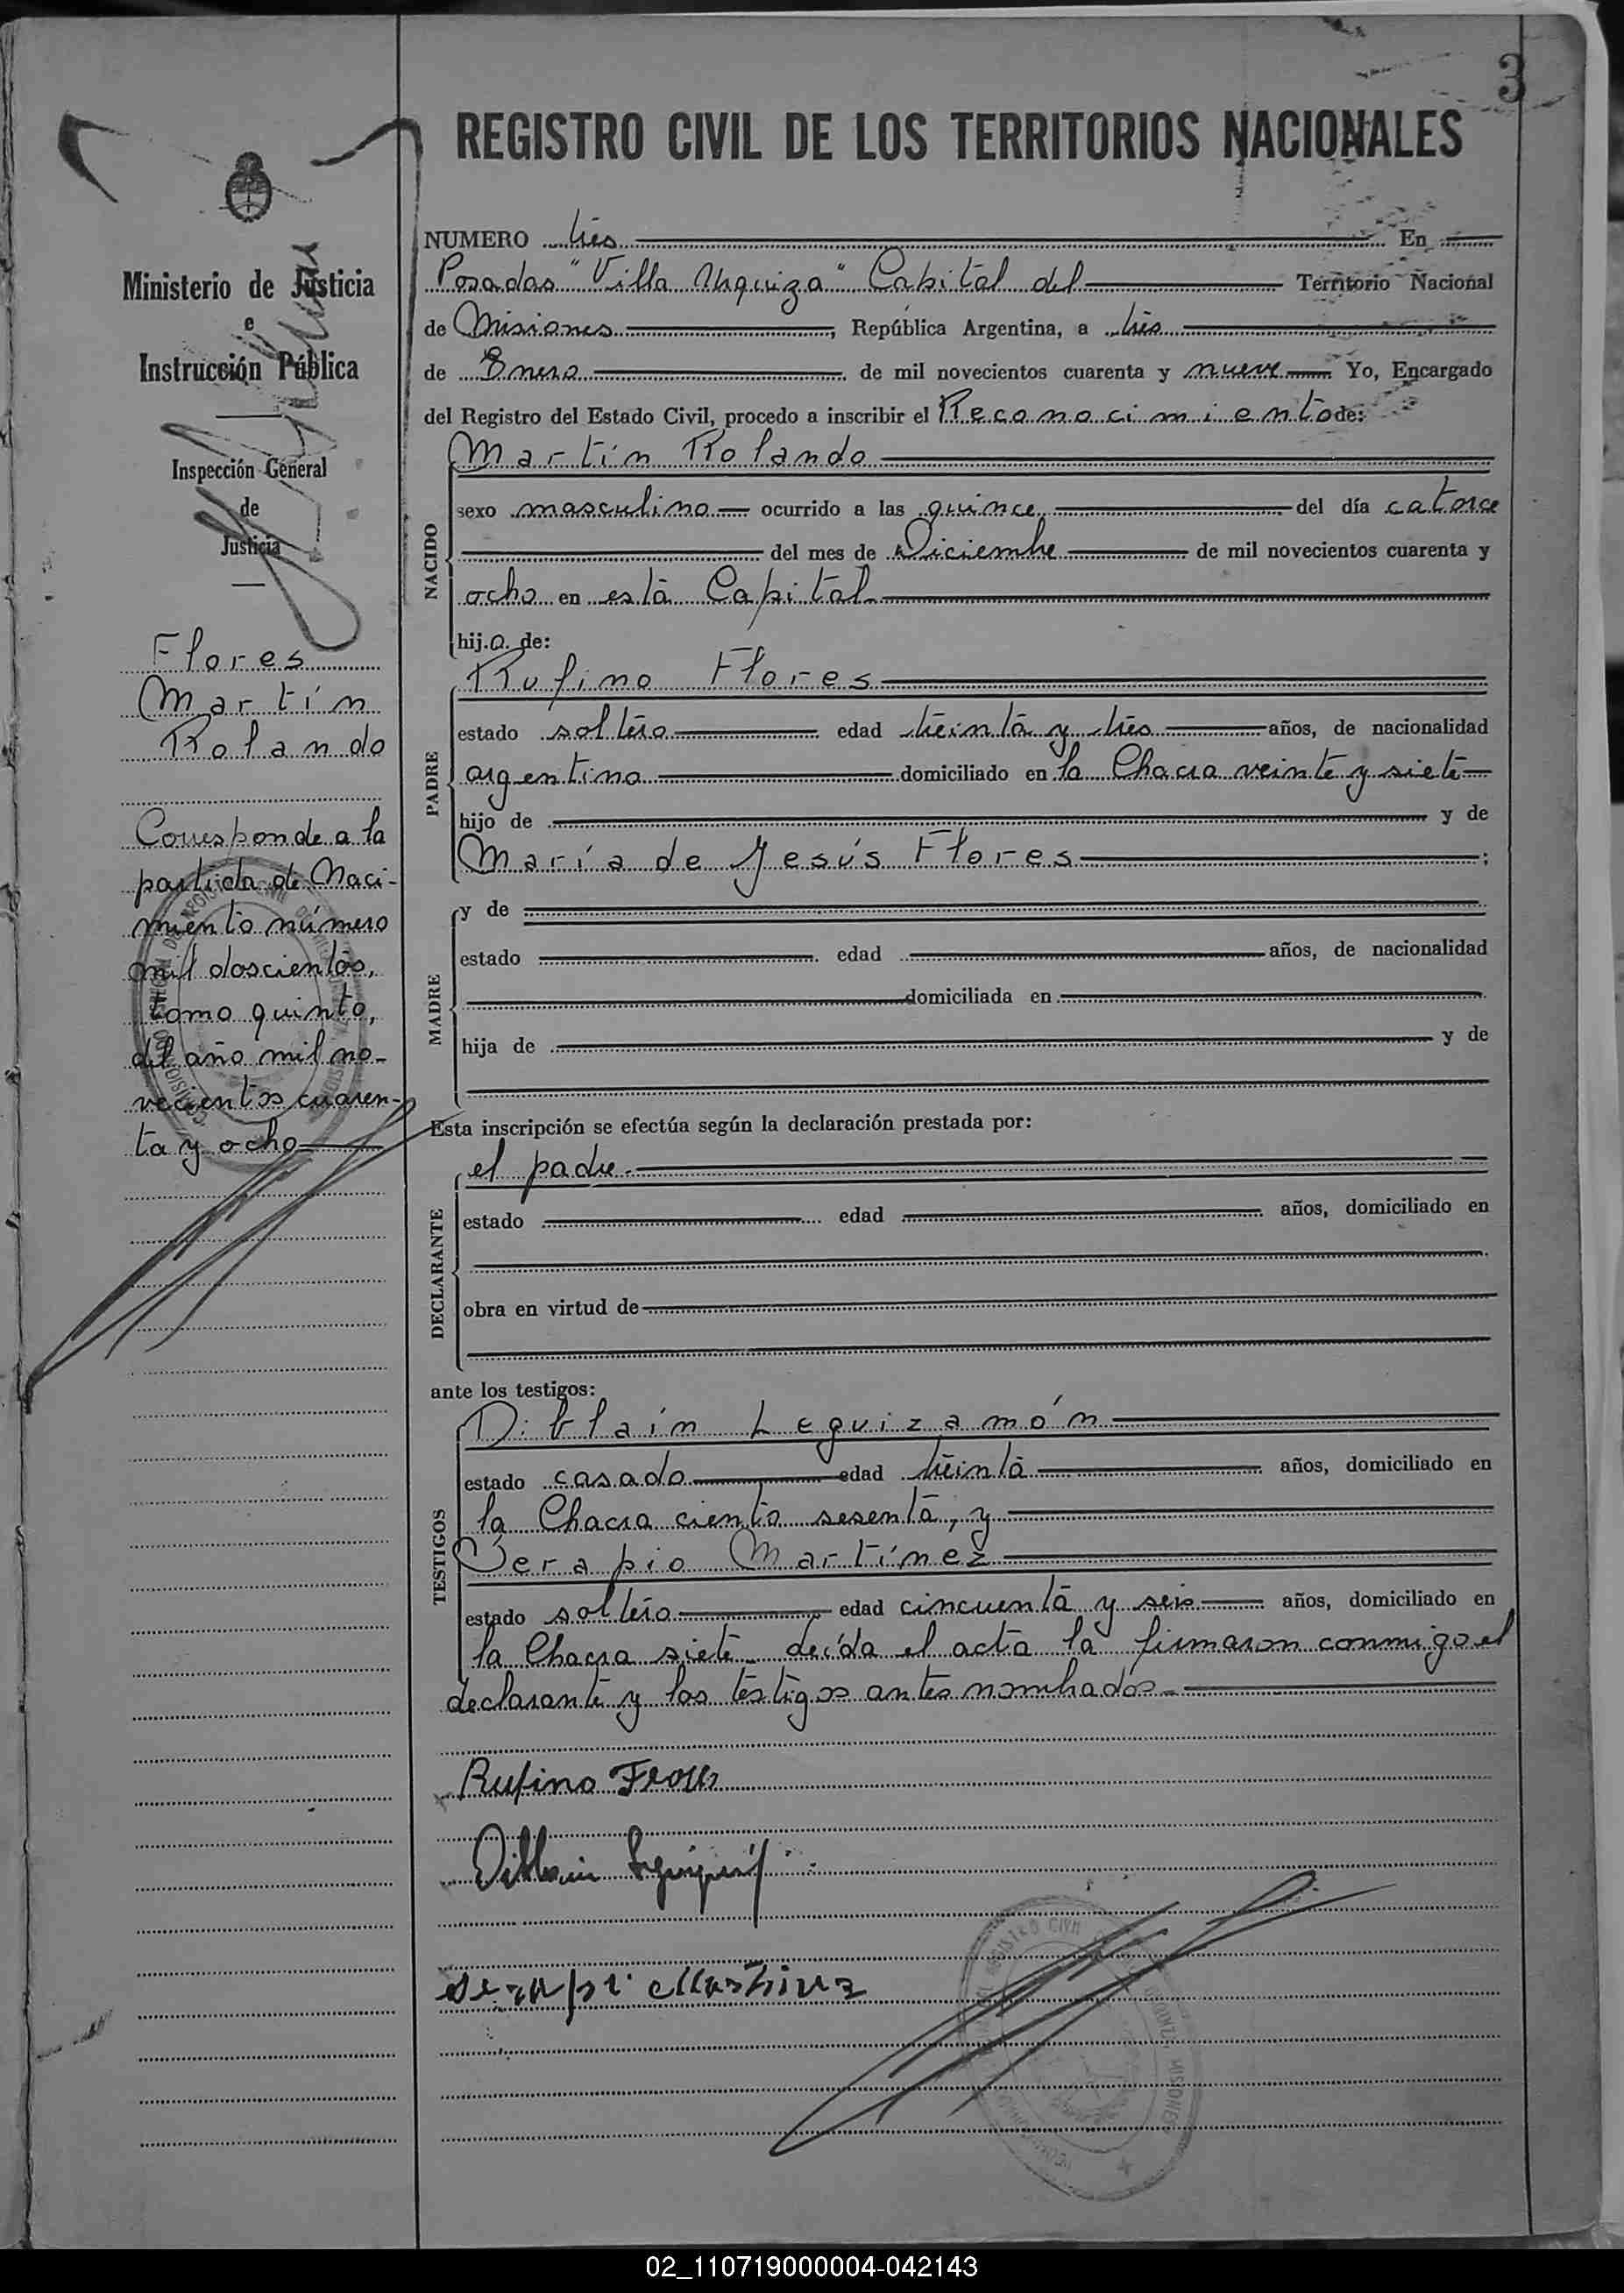 3
REGISTRO CIVIL DE LOS TERRITORIOS NACIONALES
Ministerio de Justicia
e
Instrucción Pública
Inspección General
de
Justicia
Flores
Martín
Rolando
Corresponde a la
partida de Naci-
miento número
mil doscientos,
tomo quinto,
del año mil no-
vecientos cuaren-
ta y ocho
NUMERO tres En
Posadas "Villa Urquiza" Capital del Territorio Nacional
de Misiones, República Argentina, a tres
de Enero de mil novecientos cuarenta y nueve Yo, Encargado
del Registro del Estado Civil, procedo a inscribir el Reconocimiento de:
NACIDO
Martín Rolando
sexo masculino ocurrido a las quince del día catorce
del mes de Diciembre de mil novecientos cuarenta y
ocho en esta Capital
hijo de:
PADRE
Rufino Flores
estado soltero edad treinta y tres años, de nacionalidad
argentino domiciliado en la Chacra veinte y siete
hijo de y de
María de Jesús Flores;
MADRE
y de
estado edad años, de nacionalidad
domiciliada en
hija de y de
Esta inscripción se efectúa según la declaración prestada por:
DECLARANTE
el padre.
estado edad años, domiciliado en
obra en virtud de
ante los testigos:
TESTIGOS
Diblaín Leguizamón
estado casado edad treinta años, domiciliado en
la Chacra ciento sesenta, y
Serapio Martínez
estado soltero edad cincuenta y seis años, domiciliado en
la Chacra siete leída el acta la firmaron conmigo el
declarante y los testigos antes nombrados.
Rufino Flores
02_110719000004-042143